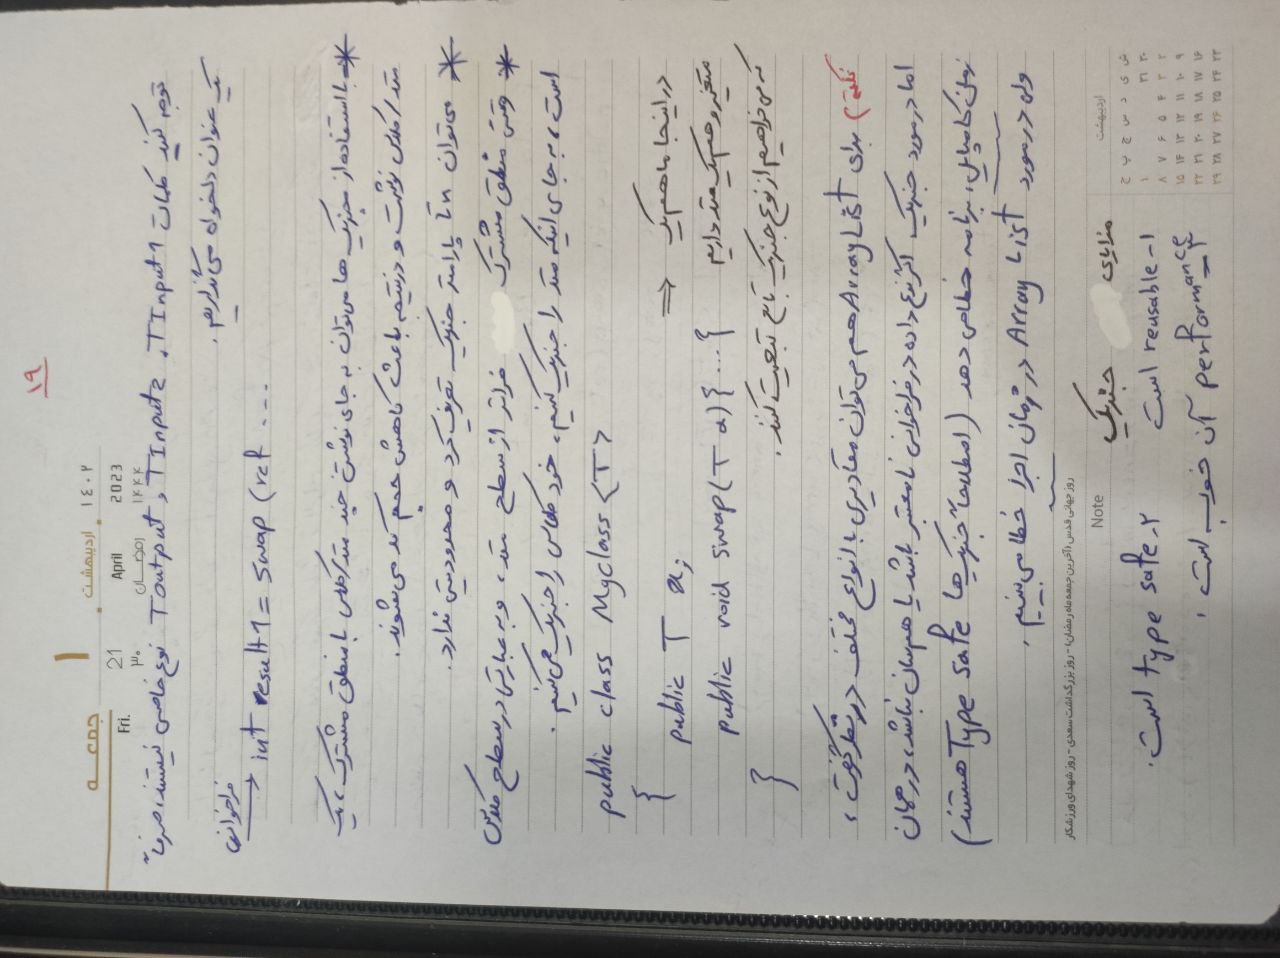 ۱۹
جمعه ۱ اردیبهشت ۱۴۰۲
Fri. 21 April 2023
۳۰ رمضان ۱۴۴۴
توجه کنید کلمات TInput1، TInput2 و Toutput نوع خاصی نیستند، صرفاً
یک عنوان دلخواه می‌گذاریم.
فراخوانی
int result1 = swap (ref ...
* با استفاده از جنریک ها می‌توان به جای نوشتن چند متد/کلاس با منطق مشترک، یک
متد/کلاس نوشت و در نتیجه باعث کاهش حجم کد می‌شوند.
* می‌توان تا n پارامتر جنریک تعریف کرد و محدودیتی ندارد.
* وقتی منطق مشترک فراتر از سطح متد، و به عبارتی در سطح کلاس
است، به جای اینکه متد را جنریک کنیم، خود کلاس را جنریک می‌کنیم.
public class Myclass <T>
{
public T a;
public void swap(T a) { ... }
}
در اینجا ما هم یک
متغیر و هم یک متد داریم
که می‌خواهیم از نوع جنریک تابع تبعیت کنند.
نکته) برای ArrayList هم می‌توان مقادیری با انواع مختلف در نظر گرفت،
اما در مورد جنریک اگر نوع داده در فراخوانی نامعتبر باشد یا هم‌سان نباشد، در همان
زمان کامپایل، برنامه خطا می دهد (اصطلاحاً جنریک‌ها Type safe هستند)
ولی در مورد Array List در زمان اجرا خطا می‌بینیم.
روز جهانی قدس (آخرین جمعه ماه رمضان) - روز بزرگداشت سعدی - روز شهدای ورزشکار
Note
مزایای جنریک
۱- reusable است ۲- type safe است.
۳- performance آن خوب است.
اردیبهشت
ش ی د س چ پ ج
۳۰ ۳۱ ۱
۲ ۳ ۴ ۵ ۶ ۷ ۸
۹ ۱۰ ۱۱ ۱۲ ۱۳ ۱۴ ۱۵
۱۶ ۱۷ ۱۸ ۱۹ ۲۰ ۲۱ ۲۲
۲۳ ۲۴ ۲۵ ۲۶ ۲۷ ۲۸ ۲۹